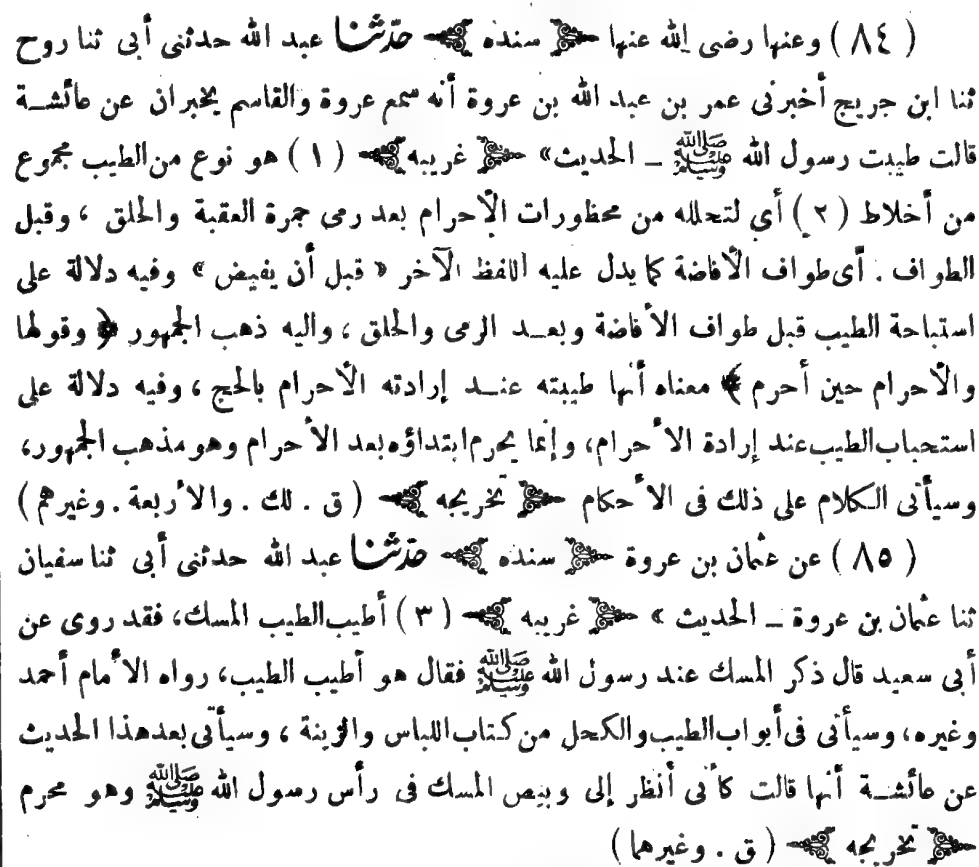 ( ٨٤ ) وعنها رضى الله عنها ﴿ سنده ﴾ حدثنا عبد الله حدثنى أبى ثنا روح
ثنا ابن جريج أخبرنى عمر بن عبد الله بن عروة أنه سمع عروة والقاسم يخبران عن عائشة
قالت طيبت رسول الله ﷺ ــ الحديث» ﴿ غريبه ﴾ ( ١ ) هو نوع من الطيب مجموع
من أخلاط ( ٢ ) أي لتحلله من محظورات الأحرام بعد رمى جمرة العقبة والحلق ، وقبل
الطواف . أى طواف الأفاضة كما يدل عليه اللفظ الآخر « قبل أن يفيض » وفيه دلالة على
استباحة الطيب قبل طواف الأفاضة وبعد الرمى والحلق ، واليه ذهب الجمهور ﴿ وقولها
والأحرام حين أحرم ﴾ معناه أنها طيبته عند إرادته الأحرام بالحج ، وفيه دلالة على
استحباب الطيب عند إرادة الأحرام، وإنما يحرم ابتداؤه بعد الأحرام وهو مذهب الجمهور،
وسيأتى الكلام على ذلك فى الأحكام ﴿ تخريجه ﴾ ( ق . لك . والأربعة . وغيرهم )
( ٨٥ ) عن عثمان بن عروة ﴿ سنده ﴾ حدثنا عبد الله حدثنى أبى ثنا سفيان
ثنا عثمان بن عروة ــ الحديث » ﴿ غريبه ﴾ ( ٣ ) أطيب الطيب المسك، فقد روى عن
أبى سعيد قال ذكر المسك عند رسول الله ﷺ فقال هو أطيب الطيب، رواه الأمام أحمد
وغيره، وسيأتى فى أبواب الطيب والكحل من كتاب اللباس والزينة ، وسيأتى بعد هذا الحديث
عن عائشة أنها قالت كأنى أنظر إلى وبيص المسك فى رأس رسول الله ﷺ وهو محرم
﴿ تخريجه ﴾ ( ق . وغيرهما )